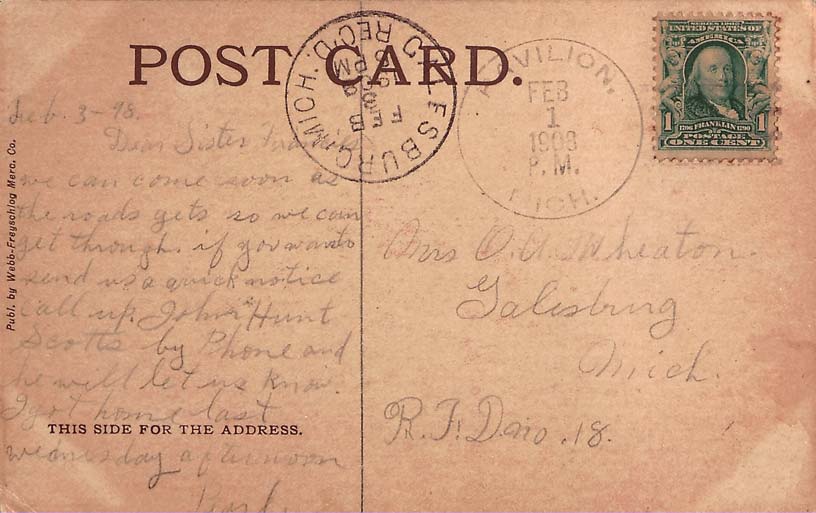 POST CARD.
GALESBURG MICH. REC'D.
FEB 3
PM
1908
PAVILION.
FEB
1
1908
P.M.
MICH.
SERIES 1902
UNITED STATES OF
AMERICA
1 1706 FRANKLIN 1790 1
POSTAGE
ONE CENT
Publ. by Webb-Freyschlag Merc. Co.
Feb. 3-98.
Dear Sister
we can come soon as
the roads gets so we can
get through. if you want to
send us a quick notice
call up. John Hunt
Scotts by Phone and
he will let us know.
I got home last
THIS SIDE FOR THE ADDRESS.
wednesday afternoon
Mrs O. A. Wheaton.
Galesburg
Mich.
R. F. D no. 18.